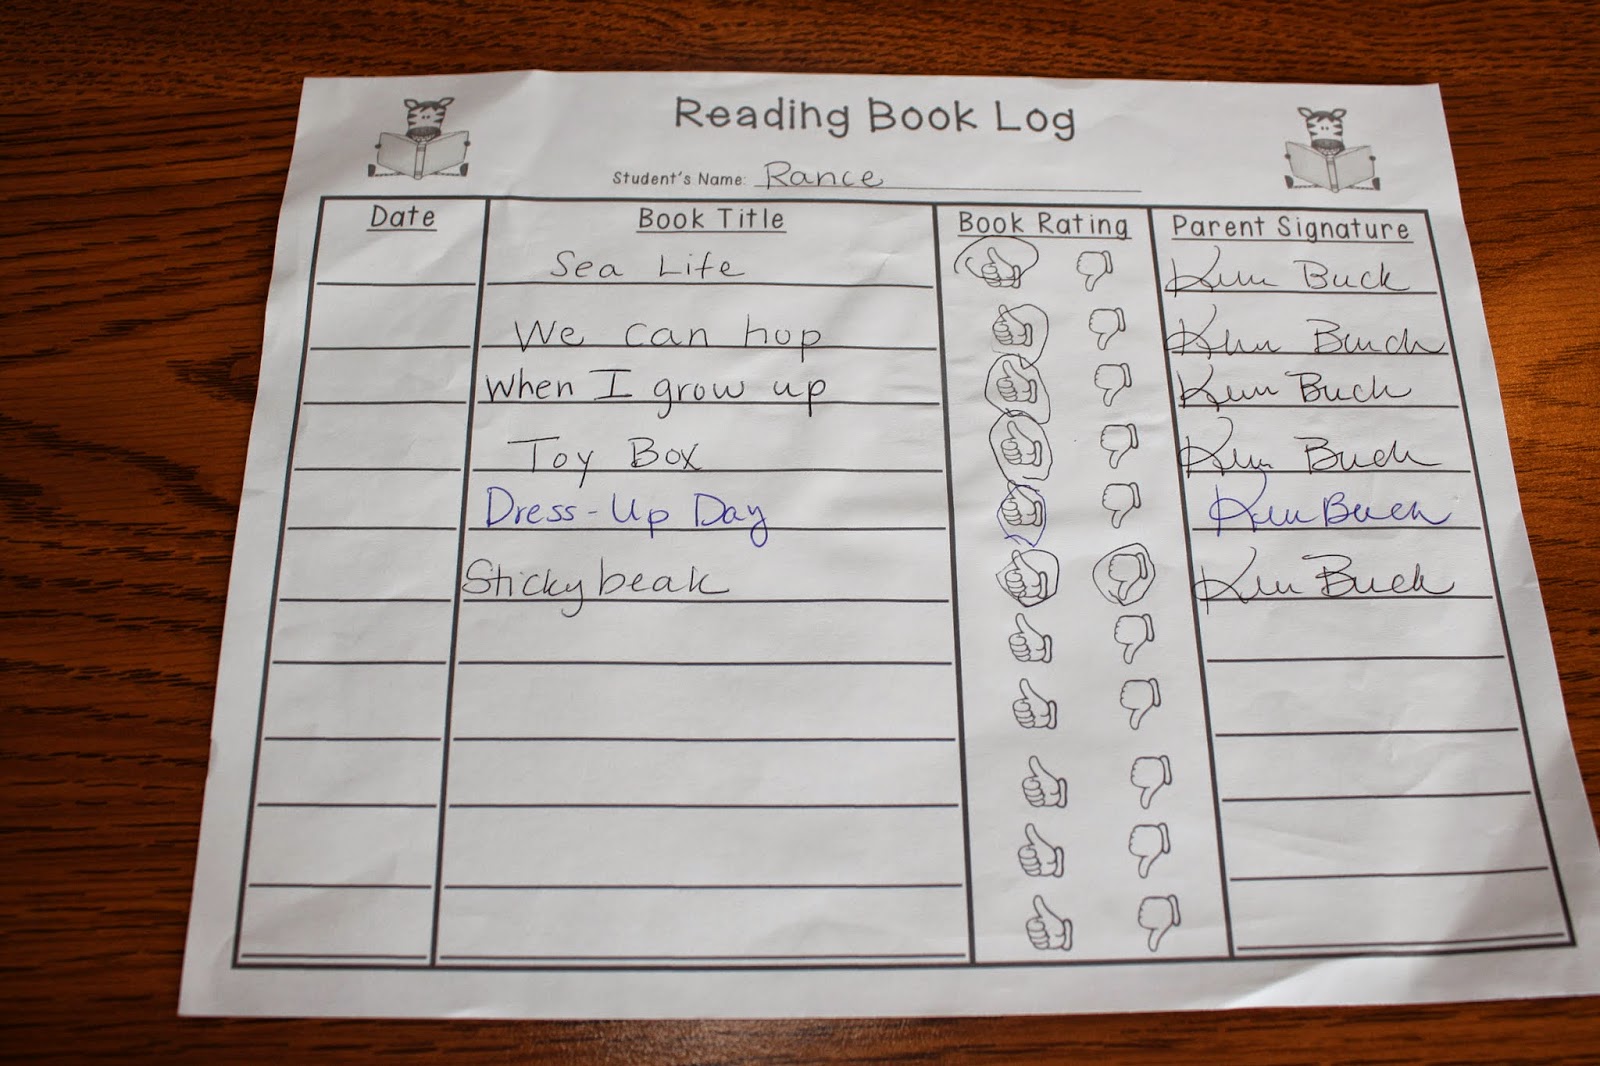 Reading Book Log
Student's Name: Rance
Date Book Title Book Rating Parent Signature
Sea Life Buck
We can hop
When I grow up Buck
Toy Box Buck
Dress-Up Day Buck
Stickybeak Buck